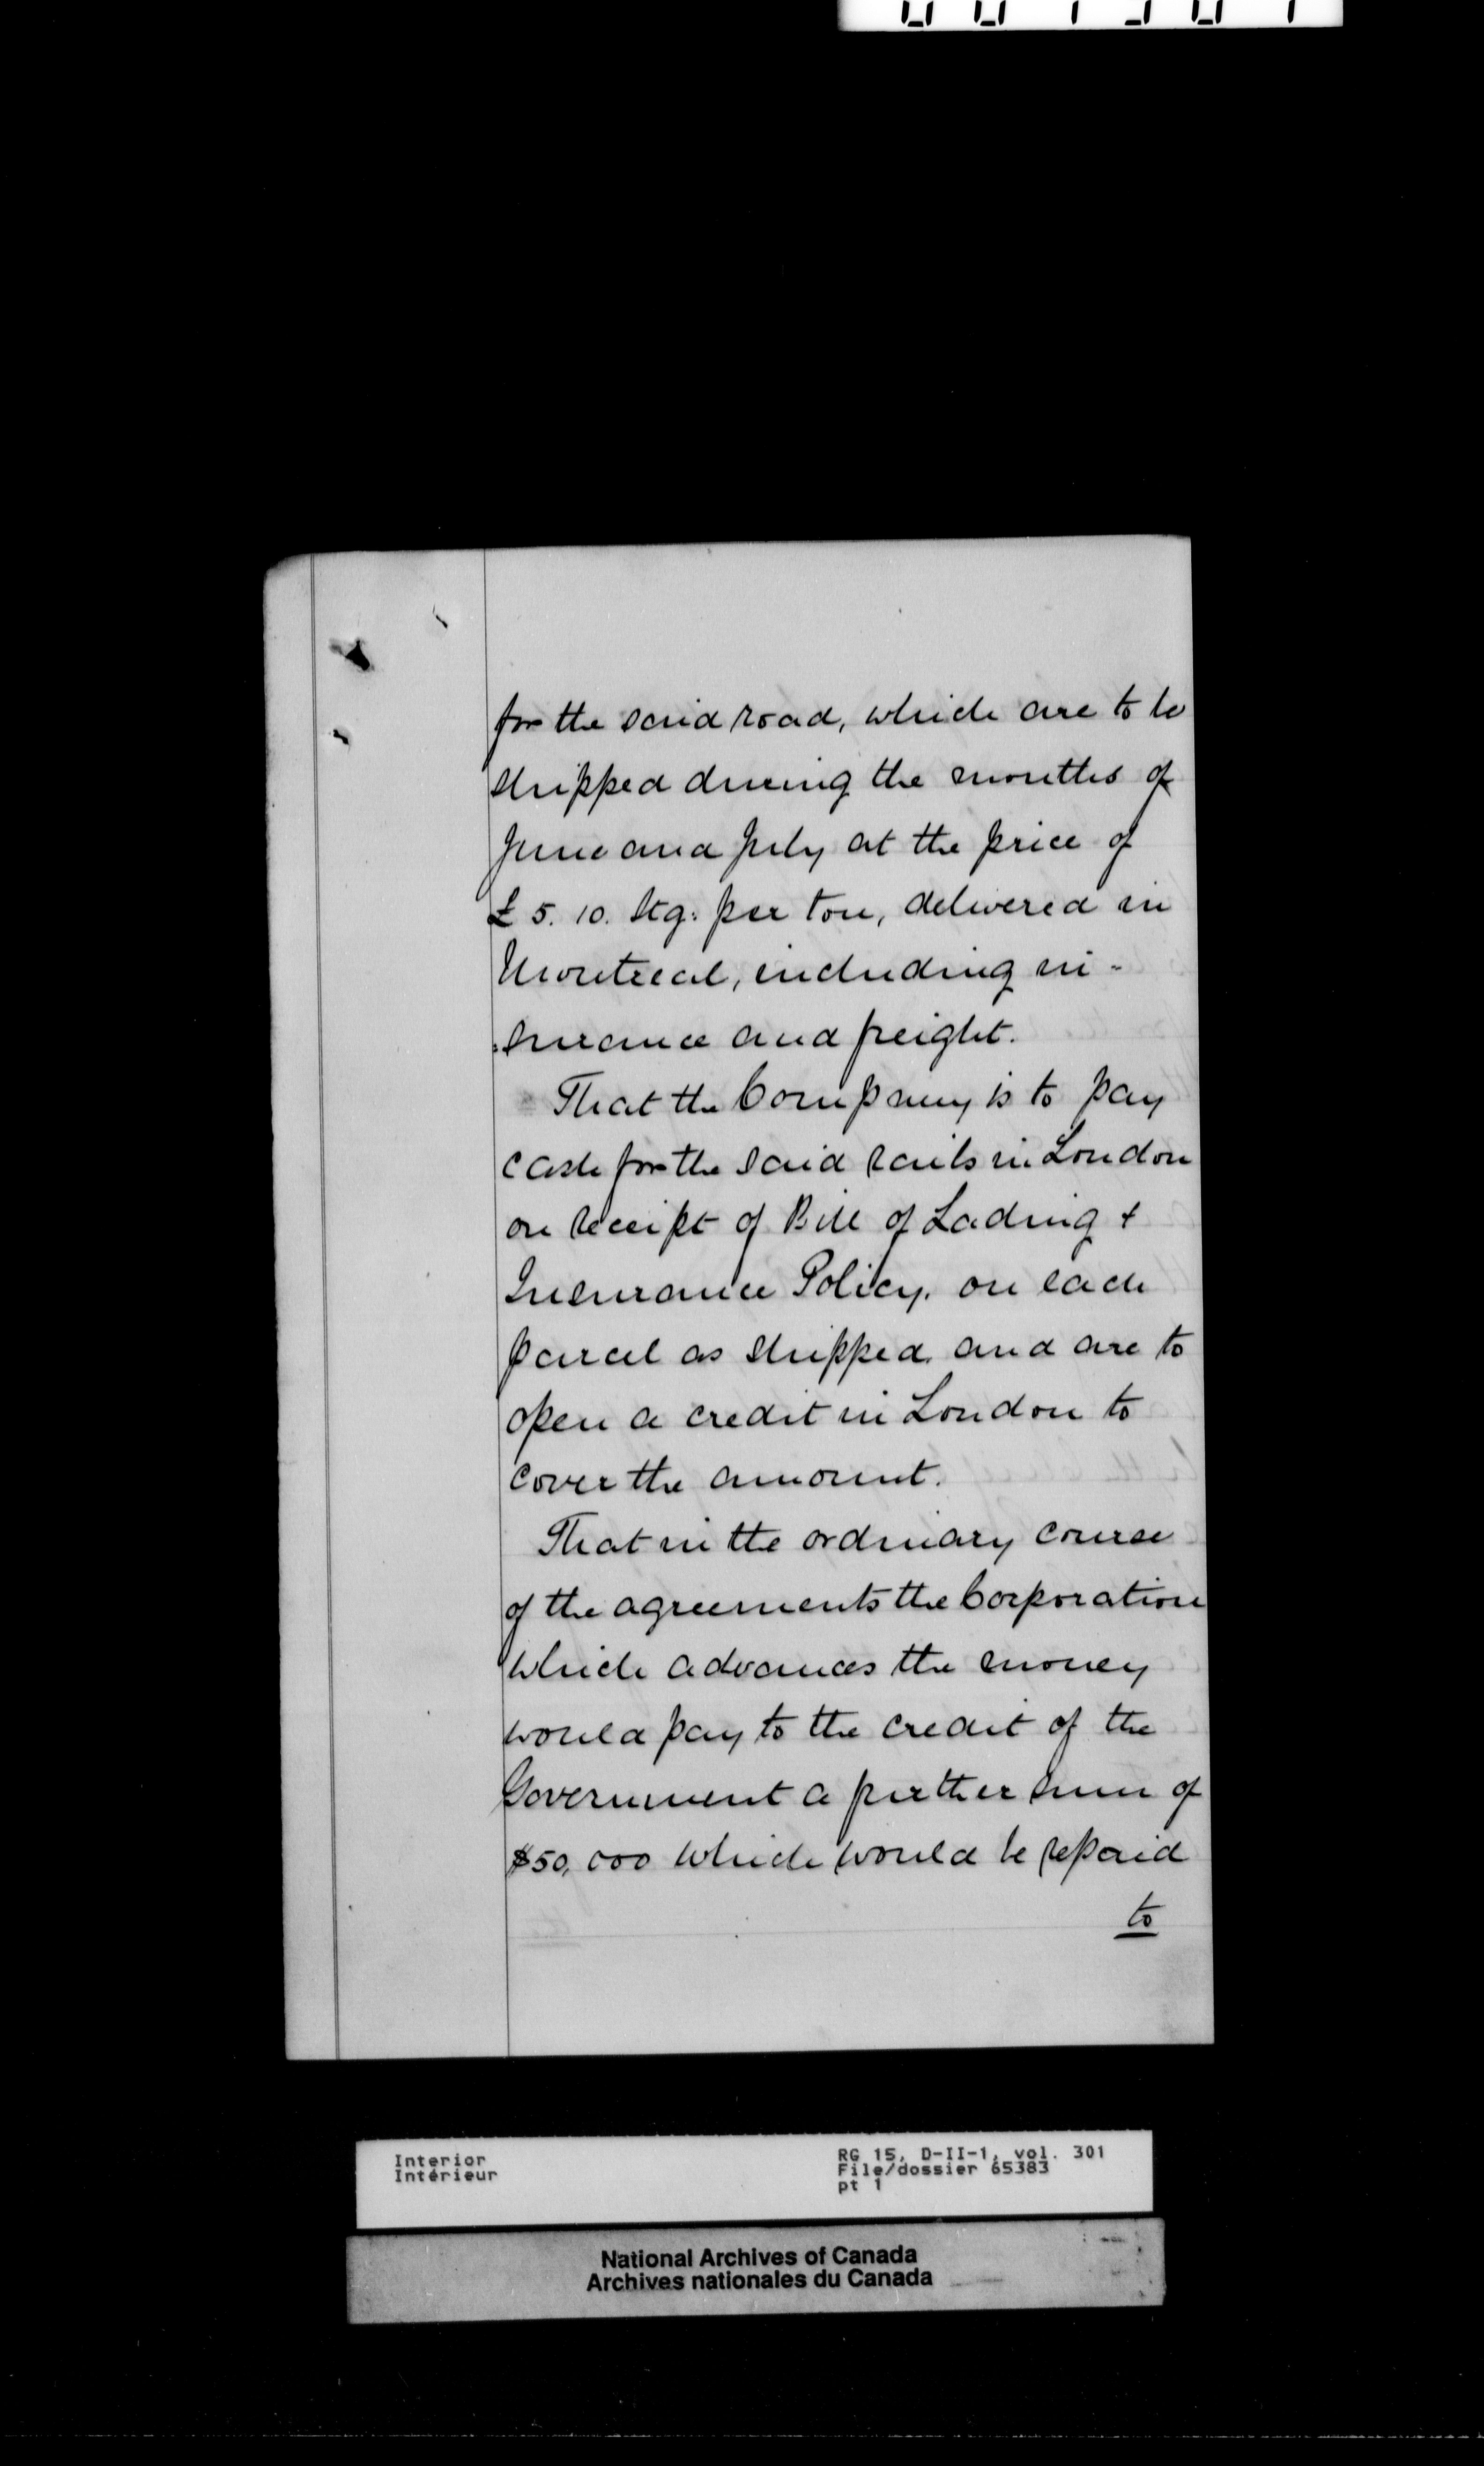 for the said road, which are to be
shipped during the months of
June and July at the price of
£5. 10. Stg: per ton, delivered in
Montreal, including in-
surance and freight.
That the Company is to pay
cash for the said rails in London
on receipt of Bill of Lading &
Insurance Policy. on each
parcel as shipped, and are to
open a credit in London to
cover the amount.
That in the ordinary course
of the agreements the Corporation
which advances the money
would pay to the credit of the
Government a further sum of
$50,000 which would be repaid
to
Interior
Intérieur
RG 15, D-II-1, vol. 301
File/dossier 65383
pt 1
National Archives of Canada
Archives nationales du Canada